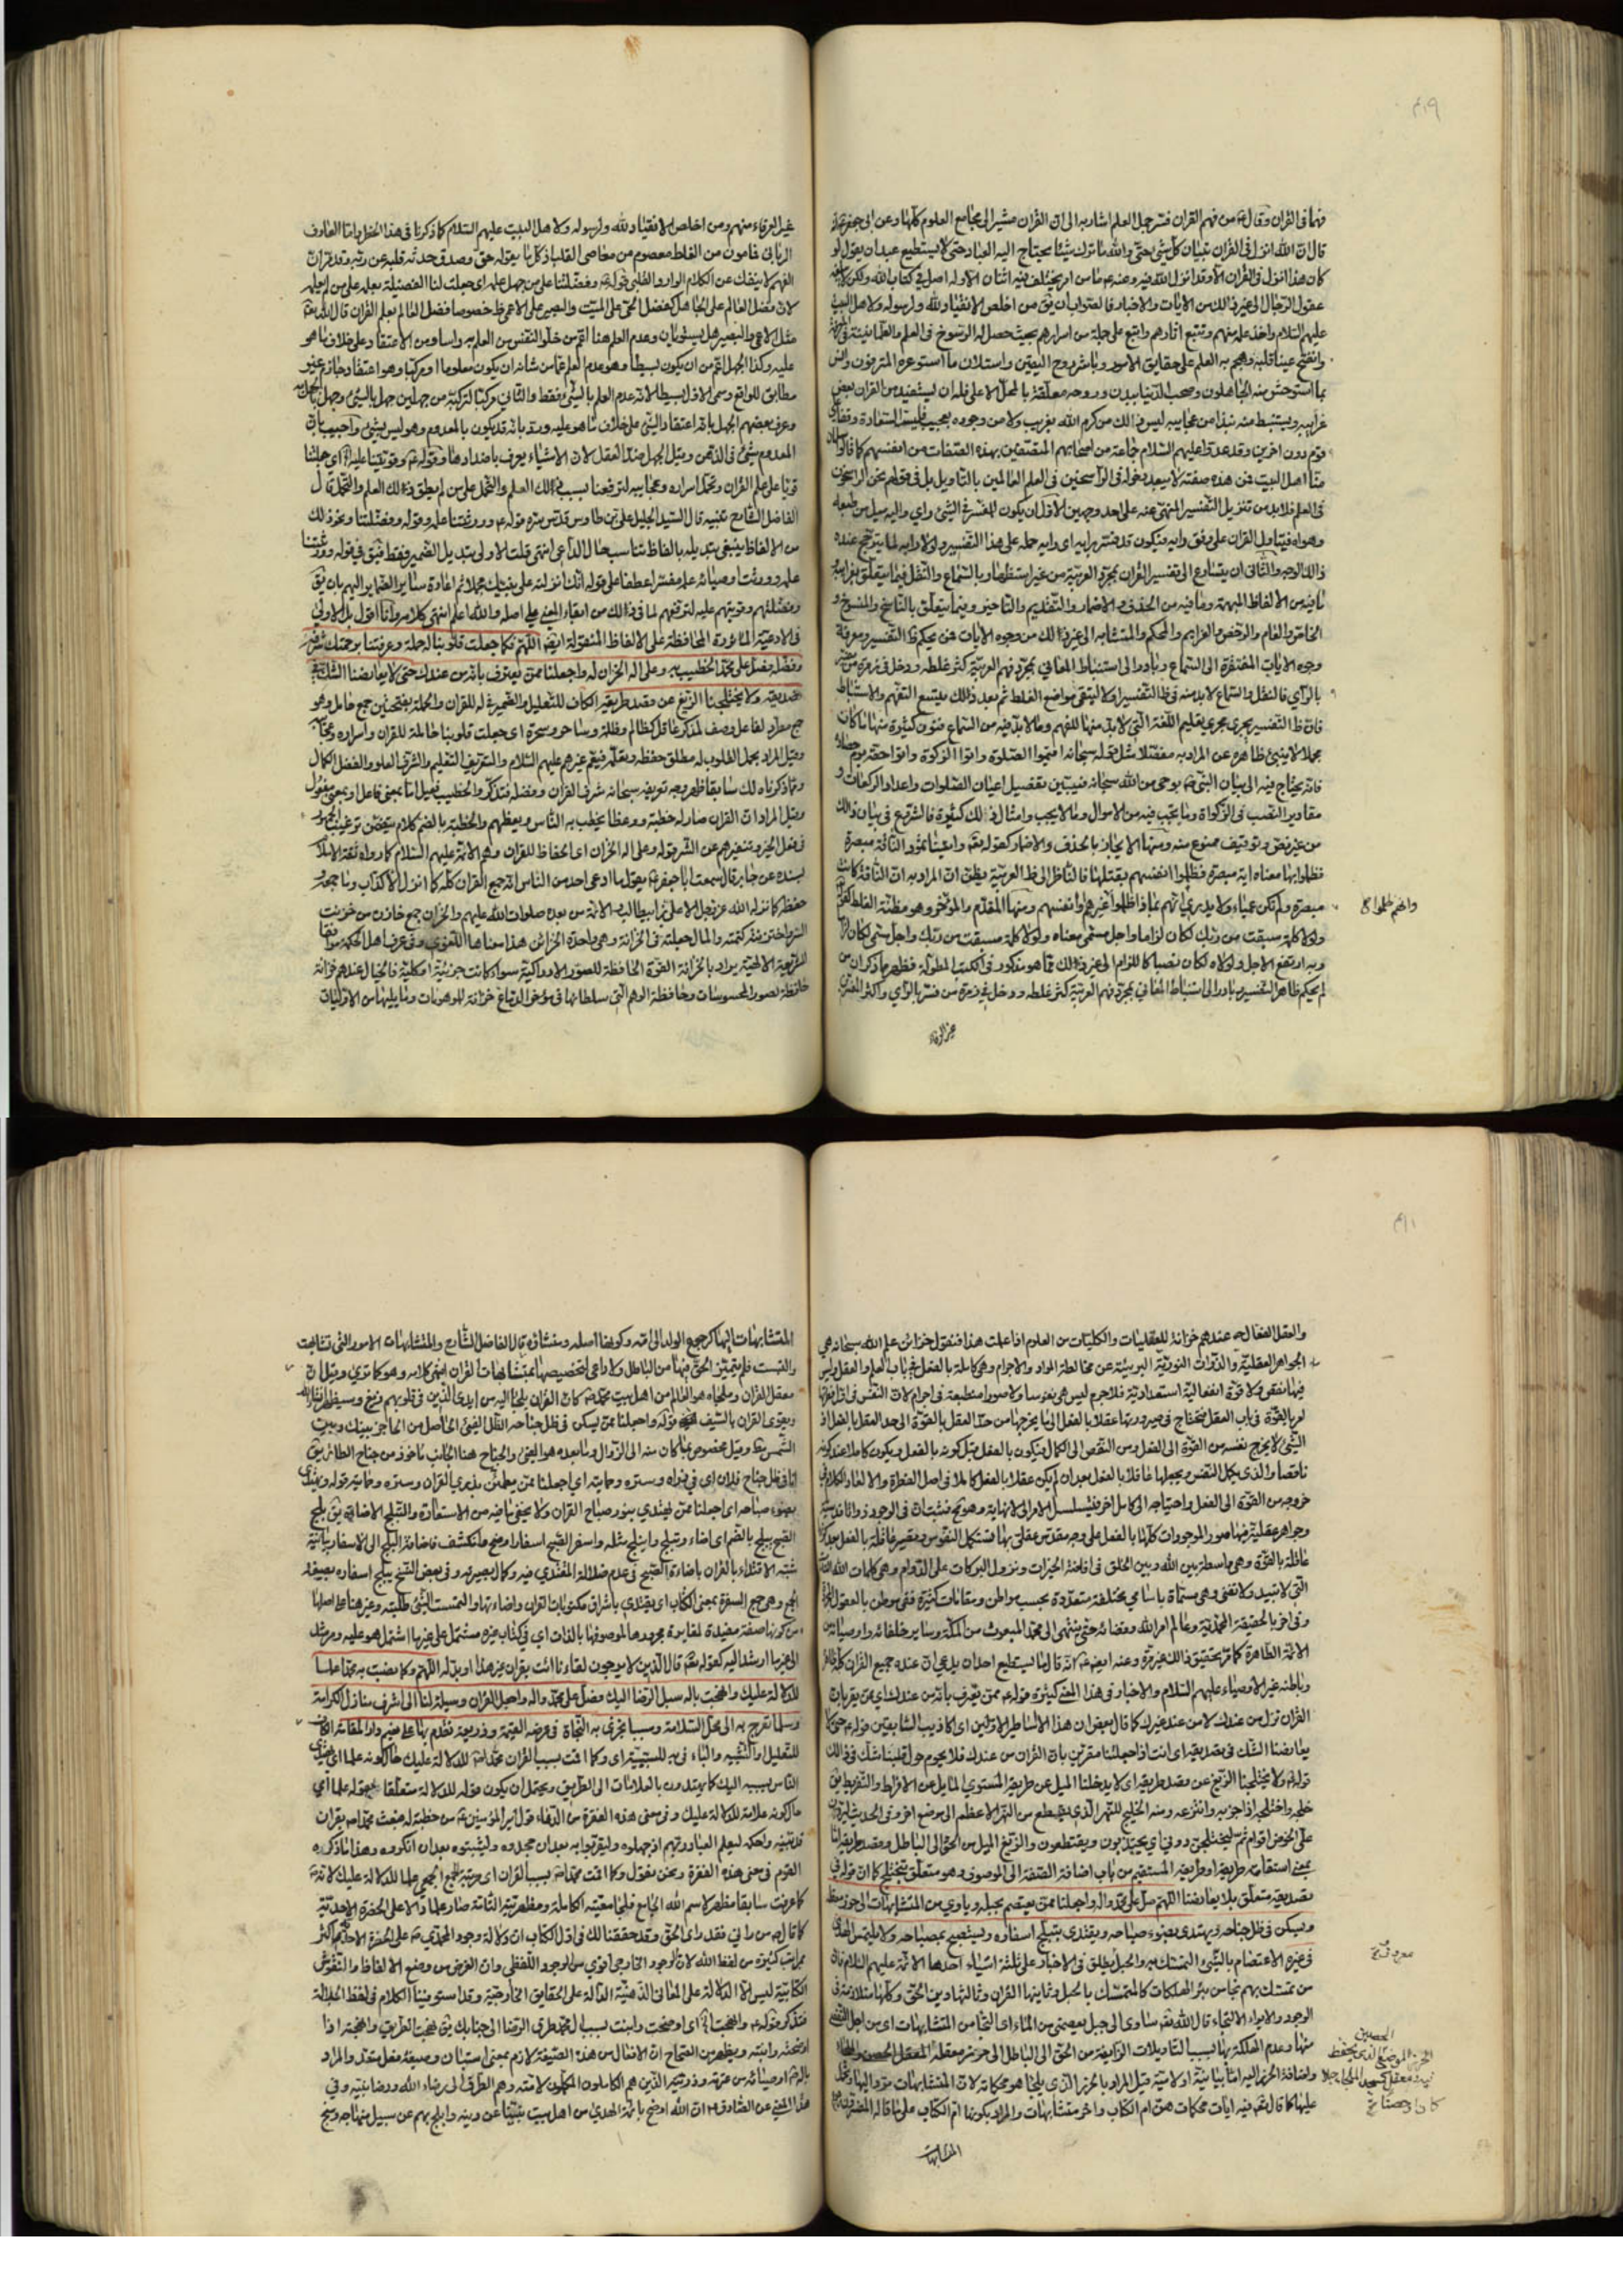 فهما في القرآن وقال من فهم القرآن فسر جمل العلم اشار به الى ان القرآن مشير الى مجامع العلوم كلها وعن ابي جعفر
قال ان الله انزل في القرآن تبيان كل شيء حتى والله ما ترك شيئا يحتاج اليه العباد حتى لا يستطيع عبد ان يقول لو
كان هذا انزل في القرآن الا وقد انزل الله فيه وعنه ما من امر يختلف فيه اثنان الا وله اصل في كتاب الله ولكن لا تبلغه
عقول الرجال الى غير ذلك من الايات والاخبار فالصواب ان يق من اخلص الانقياد لله ولرسوله ولاهل البيت
عليهم السلام واخذ علمه منهم وتتبع اثارهم واطلع على جملة من اسرارهم بحيث حصل له الرسوخ في العلم والطمأنينة في المعرفة
وانفتح عينا قلبه وهجم به العلم على حقايق الامور وباشر روح اليقين واستلان ما استوعره المترفون وانس
بما استوحش منه الجاهلون وصحب الدنيا ببدن وروحه معلقة بالمحل الاعلى فله ان يستفيد من القرآن بعض
غرايبه ويستنبط منه نبذا من عجايبه ليس ذلك من كرم الله بغريب ولا من وجوده بعجيب فليست السعادة وقفا على
قوم دون اخرين وقد عدوا عليهم السلام جماعة من اصحابهم المتصفين بهذه الصفات من انفسهم كما قالوا سلمان
منا اهل البيت فمن هذه صفته لا يبعد دخوله في الراسخين في العلم العالمين بالتأويل بل في قولهم نحن الراسخون
في العلم فلا بد من تنزيل التفسير المنهي عنه على احد وجهين الاول ان يكون للمفسر في الشيء رأي واليه ميل من طبعه
وهواه فيتاول القرآن على وفق رايه فيكون قد فسر برايه اي رايه حمله على هذا التفسير ولولا رايه لما يترجح عنده
ذلك الوجه والثاني ان يتسارع الى تفسير القرآن بمجرد العربية من غير استظهار بالسماع والنقل فيما يتعلق بغرايبه
ما فيه من الالفاظ المبهمة وما فيه من الحذف والاضمار والتقديم والتاخير وفيما يتعلق بالناسخ والمنسوخ و
الخاص والعام والرخص والعزايم والمحكم والمتشابه الى غير ذلك من وجوه الايات فمن لم يحكم ظ التفسير ومعرفة
وجوه الايات المفتقرة الى السماع وبادر الى استنباط المعاني بمجرد فهم العربية كثر غلطه ودخل في زمرة من فسر
بالرأي فالنقل والسماع لا بد منه في ظ التفسير اولا ليتقى مواضع الغلط ثم بعد ذلك يتسع التفهم والاستنباط
فان ظ التفسير يجري مجرى تعليم اللغة التي لا بد منها للفهم وما لا بد فيه من السماع فنون كثيرة منها ما كان
مجملا لا ينبئ ظاهره عن المراد به مفصلا مثل قوله سبحانه اقيموا الصلوة واتوا الزكوة واتوا حقه يوم حصاده
فانه يحتاج فيه الى بيان النبي بوحي من الله سبحانه فيبين تفصيل اعيان الصلوات واعداد الركعات و
مقادير النصب في الزكوات وما يجب فيه من الاموال وما لا يجب وامثال ذلك كثيرة فالشروع في بيان ذلك
من غير نص وتوقيف ممنوع منه ومنها الايجاز بالحذف والاضمار كقوله تعالى واتينا ثمود الناقة مبصرة
فظلموا بها معناه اية مبصرة فظلموا انفسهم بقتلها فالناظر الى ظ العربية يظن ان المراد به ان الناقة كانت
مبصرة ولم تكن عمياء ولا يدري انهم بماذا ظلموا غيرهم وانفسهم ومنها المقدم والمؤخر وهو مظنة الغلط كقوله
ولولا كلمة سبقت من ربك لكان لزاما واجل مسمى معناه ولولا كلمة سبقت من ربك واجل مسمى لكان لزاما
وبه ارتفع الاجل ولولاه لكان نصبا كاللزام الى غير ذلك مما هو مذكور في الكتب المطولة فظهر مما ذكر ان من
لم يحكم ظاهر التفسير بادر الى استنباط المعاني بمجرد فهم العربية كثر غلطه ودخل في زمرة من فسر بالرأي واكثر المفسرين
غير العرفاء منهم ومن اخلص الانقياد لله ولرسوله ولاهل البيت عليهم السلام كما ذكرنا في هذا الخطر واما العارف
الرباني فمأمون من الغلط معصوم من معاصي القلب اذ كل ما يقوله حق وصدق حدثه قلبه عن ربه وقد مر ان
الفهم لا ينفك عن الكلام الوارد القلبي قوله وفضلتنا على من جهل علمه اي جعلت لنا الفضيلة بعلمه على من لم يعلمه
لان فضل العالم على الجاهل كفضل الحي على الميت والبصير على الاعمى خصوصا فضل العالم بعلم القرآن قال الله تعالى
مثل الاعمى والبصير هل يستويان وعدم العلم هنا اعم من خلو النفس من العلم به واساومن الاعتقاد على خلاف ما هو
عليه وكذا الجهل اعم من ان يكون بسيطا وهو عدم العلم عما من شانه ان يكون معلوما او مركبا وهو اعتقاد جازم غير
مطابق للواقع وسمي الاول بسيطا لانه عدم العلم بالشيء فقط والثاني مركبا لتركبه من جهلين جهل بالشيء وجهل بالجهل به
وعرف بعضهم الجهل بانه اعتقاد الشيء على خلاف ما هو عليه ورد بانه قد يكون بالمعدوم وهو ليس بشيء واجيب بان
المعدوم شيء في الذهن وقيل الجهل ضد العقل لان الاشياء يعرف باضدادها وقوله وقويتنا عليه اي جعلتنا
قويا على علم القرآن وتحمل اسراره وعجايبه لترفعنا بسبب ذلك العلم والتحمل على من لم يطق ذلك العلم والتحمل قال
الفاضل الشارح تنبيه قال السيد الجليل علي بن طاوس قدس سره قوله وورثتنا علمه وقوله وفضلتنا ونحو ذلك
من الالفاظ ينبغي تبديله بالفاظ تناسب حال الداعي انتهى قلت الاولى تبديل الضمير فقط فيق في قوله وورثتنا
علمه وورثت اوصيائه علمه مفسرا عطفا على قوله انك انزلته على نبيك مجملا ثم اعادة ساير الضماير اليهم بان يق
وفضلتهم وقويتهم عليه لترفعهم لما في ذلك من ابقاء المعنى على اصله والله اعلم انتهى كلامه وانا اقول بل الاولى
في الادعية المأثورة المحافظة على الالفاظ المنقولة ايضا اللهم فكما جعلت قلوبنا له حملة وعرفتنا برحمتك شرفه
وفضله فصل على محمد الخطيب به وعلى اله الخزان له واجعلنا ممن يعترف بانه من عندك حتى لا يعارضنا الشك في
تصديقه ولا يختلجنا الزيغ عن قصد طريقه الكاف للتعليل والضمير في له للقرآن والحملة بفتحتين جمع حامل وهو
جمع مطرد لفاعل وصف لمذكر عاقل كظالم وظلمة وساحر وسحرة اي جعلت قلوبنا حاملة للقرآن واسراره وعجائبه
وقيل المراد بحمل القلوب له مطلق حفظه وتعلمه فيعم غيرهم عليهم السلام والتعريف التعليم والشرف العلو والفضل الكمال
ومما ذكرناه لك سابقا ظهر وجه تعريفه سبحانه شرف القرآن وفضله فتذكر والخطيب فعيل اما بمعنى فاعل او بمعنى مفعول
وقيل المراد ان القرآن صار له خطبة ووعظا يخطب به الناس ويعظهم والخطبة بالضم كلام يتضمن ترغيب الجمهور
في فعل الخير وتنفيرهم عن الشر قوله وعلى اله الخزان اي الحفاظ للقرآن وهم الائمة عليهم السلام كما رواه ثقة الاسلام
بسنده عن جابر قال سمعت ابا جعفر يقول ما ادعى احد من الناس انه جمع القرآن كله كما انزل الا كذاب وما جمعه و
حفظه كما نزله الله عز وجل الا علي بن ابيطالب والائمة من بعده صلوات الله عليهم والخزان جمع خازن من خزنت
السر واختزنته كتمته والمال جعلته في الخزانة وهي واحدة الخزائن هذا معناها اللغوي وفي عرف اهل الحكمة
الالهية يراد بالخزانة القوة الحافظة للصور الادراكية سواء كانت جزئية او كلية فالخيال عندهم خزانة
حافظة لصور المحسوسات وحافظة الوهم التي سلطانها في مؤخر الدماغ خزانة للموهومات وما يليها من الاوليات
والعقل الفعال عندهم خزانة للعقليات والكليات من العلوم اذا علمت هذا فنقول خزائن علم الله سبحانه هي
الجواهر العقلية والذوات النورية البريئة عن مخالطة المواد والاجرام وهي كاملة بالفعل في باب العلم والعقل وليس
فيها نقص ولا قوة انفعالية استعدادية فلا جرم ليس هي نفوسا ولا صورا منطبعة في اجرام لان النفس في اول
امرها بالقوة في باب العقل فتحتاج في صيرورتها عقلا بالفعل الى ما يخرجها من حد العقل بالقوة الى حد العقل بالفعل اذ
الشيء لا يخرج نفسه من القوة الى الفعل ومن النقص الى الكمال فيكون بالفعل قبل كونه بالفعل ويكون كاملا عند كونه
ناقصا والذي يكمل النفس ويجعلها عاقلا بالفعل بعد ان لم يكن عقلا بالفعل كاملا في اصل الفطرة والا لعاد الكلام في
خروجه من القوة الى الفعل واحتياجه الى كامل اخر فيتسلسل الامر الى لا نهاية وهو مح فثبت ان في الوجود ذوات قدسية
وجواهر عقلية فيها صور الموجودات كلها بالفعل على وجه مقدس عقلي بها تستكمل النفوس وتصير عاقلة بالفعل بعد كونها
عاقلة بالقوة وهي واسطة بين الله وبين الخلق في افاضة الخيرات ونزول البركات على الدوام وهي كلمات الله التامات
التي لا تبيد ولا تفنى وهي مسماة باسامي مختلفة متعددة بحسب مواطن ومقامات كثيرة ففي موطن بالعقول
وفي اخر بالحقيقة المحمدية وعالم امر الله وقضائه حتى ينتهي الى محمد المبعوث من المكة وساير خلفائه واوصيائه من
الائمة الطاهرة كما مر تحقيق ذلك غير مرة وعنه ايضا انه قال ما يستطيع احد ان يدعي ان عنده جميع القرآن كله ظاهره
وباطنه غير الاوصياء عليهم السلام والاخبار في هذا المعنى كثيرة قوله ممن يعترف بانه من عندك اي ممن يقر بان
القرآن نزل من عندك لا من عند غيرك كما قال بعض ان هذا الا اساطير الاولين اي اكاذيب السابقين قوله حتى لا
يعارضنا الشك في تصديقه اي انت اذا جعلتنا مقرين بان القرآن من عندك فلا يحوم حول قلبنا شك في ذلك
قوله ولا يختلجنا الزيغ عن قصد طريقه اي لا يدخلنا الميل عن طريقه المستوي المايل عن الافراط والتفريط من
خلجه واختلجه اذا جذبه وانتزعه ومنه الخليج للنهر الذي يقطع من النهر الاعظم الى موضع اخر وفي الحديث ليردن
على الحوض اقوام ثم ليختلجن دوني اي يجتذبون ويقتطعون والزيغ الميل من الحق الى الباطل وقصد طريقه اما
بمعنى استقامة طريقه او طريقه المستقيم من باب اضافة الصفة الى الموصوف وهو متعلق بيختلج كما ان قوله في
تصديقه متعلق بلا يعارضنا اللهم صل على محمد واله واجعلنا ممن يعتصم بحبله وياوي من المتشابهات الى حرز معقله
ويسكن في ظل جناحه ويهتدي بضوء صباحه ويقتدي بتبلج اسفاره ويستصبح بمصباحه ولا يلتمس الهدى
في غيره الاعتصام بالشيء التمسك به والحبل يطلق في الاخبار على ثلثة اشياء احدها الائمة عليهم السلام فان
من تمسك بهم نجا من بئر الهلكات كالمتمسك بالحبل وثانيها القرآن وثالثها دين الحق وكلها متلازمة في
الوجود والايواء الالتجاء قال الله تعالى ساوي الى جبل يعصمني من الماء اي التجأ من المتشابهات اي من اجل
منها وعدم الهلكة بها بسبب التاويلات الزايغة من الحق الى الباطل الى حرز معقله المعقل
واضافة الحرز اليه اما بيانية او لامية قيل المراد بالحرز الذي يلجأ هو محكماته لان المتشابهات مؤداها
عليها كما قال تعالى فيه ايات محكمات هن ام الكتاب واخر متشابهات والمراد بكونها ام الكتاب على ما قاله المفسرون
المتشابهات
المتشابهات اليها كرجوع الولد الى امه وكونها اصله ومنشاؤه قال الفاضل الشارح والمتشابهات الامور التي تشابهت
والتبست فلم يتميز الحق فيها من الباطل ولا داعي لتخصيصها بمتشابهات القرآن انتهى كلامه وهو كما ترى وقيل ان
معقل القرآن وملجاه هو العالم من اهل بيت محمد كان القرآن يلجأ اليه من ايدي الذين في قلوبهم زيغ وسيظهر
ويقوى القرآن بالسيف قوله واجعلنا ممن يسكن في ظل جناحه الظل الفيء الحاصل من الحاجز بينك وبين
الشمس وقيل مخصوص بما كان منه الى الزوال وما بعده هو الفيء والجناح هنا الجانب ماخوذ من جناح الطائر يق
انا في ظل جناح فلان اي في ذراه وستره وحمايته اي اجعلنا ممن يطمئن بذري القرآن وستره وحمايته قوله ويهتدي
بضوء صباحه اي اجعلنا ممن يهتدي بنور صباح القرآن ولا يخفى ما فيه من الاستعارة والتبلج الاضاءة يق بلج
الصبح يبلج بالضم اي اضاء وتبلج وابتلج مثله واسفر الصبح اسفارا وضح وانكشف فاضافة البلج الى الاسفار بيانية
شبه الاقتداء بالقرآن باضاءة الصبح في عدم ضلالة المقتدي فيه وكمال بصيرته وفي بعض النسخ يبلج اسفاره بصيغة
الجمع وهي جمع السفرة بمعنى الكتاب اي يقتدي باشراق مكتوبات القرآن واضاءتها والتمست الشيء طلبته وغير هنا على اصلها
من كونها صفة مفيدة لمغايرة مجرورها لموصوفها بالذات اي في كتاب غيره مشتمل على غير ما اشتمل هو عليه ومرشد
الى غير ما ارشد اليه كقوله تعالى قال الذين لا يرجون لقاءنا ائت بقرآن غير هذا او بدله اللهم وكما نصبت به محمدا علما
للدلالة عليك وانهجت باله سبل الرضا اليك فصل على محمد واله واجعل القرآن وسيلة لنا الى اشرف منازل الكرامة
وسلما نعرج به الى محل السلامة وسببا نجزى به النجاة في عرصة القيمة وذريعة نقدم بها على نعيم دار المقامة الكاف
للتعليل او التشبيه والباء في به للسببية اي وكما اقمت بسبب القرآن محمدا للدلالة عليك حال كونه علما اي يهتدي
الناس بسببه اليك كما يهتدون بالعلامات الى الطريق ويحتمل ان يكون قوله للدلالة متعلقا بقوله علما اي
حال كونه علامة للدلالة عليك وفي معنى هذه الفقرة من الدعاء قول امير المؤمنين من خطبة له فبعث محمدا بقرآن
قد بينه واحكمه ليعلم العباد ربهم اذ جهلوه وليقروا به بعد ان جحدوه وليثبتوه بعد ان انكروه وهذا ما ذكره
القوم في معنى هذه الفقرة ونحن نقول وكما اقمت محمدا بسبب القرآن اي مرتبة الجمع الجمعي علما للدلالة عليك لانه
كما عرفت سابقا مظهر لاسم الله الجامع فلجامعيته الكاملة ومظهريته التامة صار علما دالا على الحضرة الاحدية
كما قال من راني فقد راى الحق وقد حققنا لك في اول الكتاب ان دلالة وجود المحمدي على الحضرة الاحدية اكثر
بمراتب كثيرة من لفظ الله لان الوجود الخارجي اقوى من الوجود اللفظي وان الغرض من وضع الالفاظ والنقوش
الكتابية ليس الا الدلالة على المعاني الذهنية الدالة على الحقايق الخارجية وقد استوفينا الكلام في لفظ الجلالة
فتذكر قوله وانهجت اي اوضحت وابنت بسبب ال محمد طرق الرضا الى جنابك يق نهجت الطريق وانهجته اذا
اوضحته وابنته ويظهر من الصحاح ان الافعال من هذه الصيغة لازم بمعنى استبان وصيغة فعل متعد والمراد
باله اوصيائه من عترته وذريته الذين هم الكاملون المكملون لامته وهم الطرق الى رضاء الله ورضا نبيه وفي
هذا المعنى عن الصادق ان الله اوضح بائمة الهدى من اهل بيت نبينا عن دينه وابلج بهم عن سبيل منهاجه وفتح